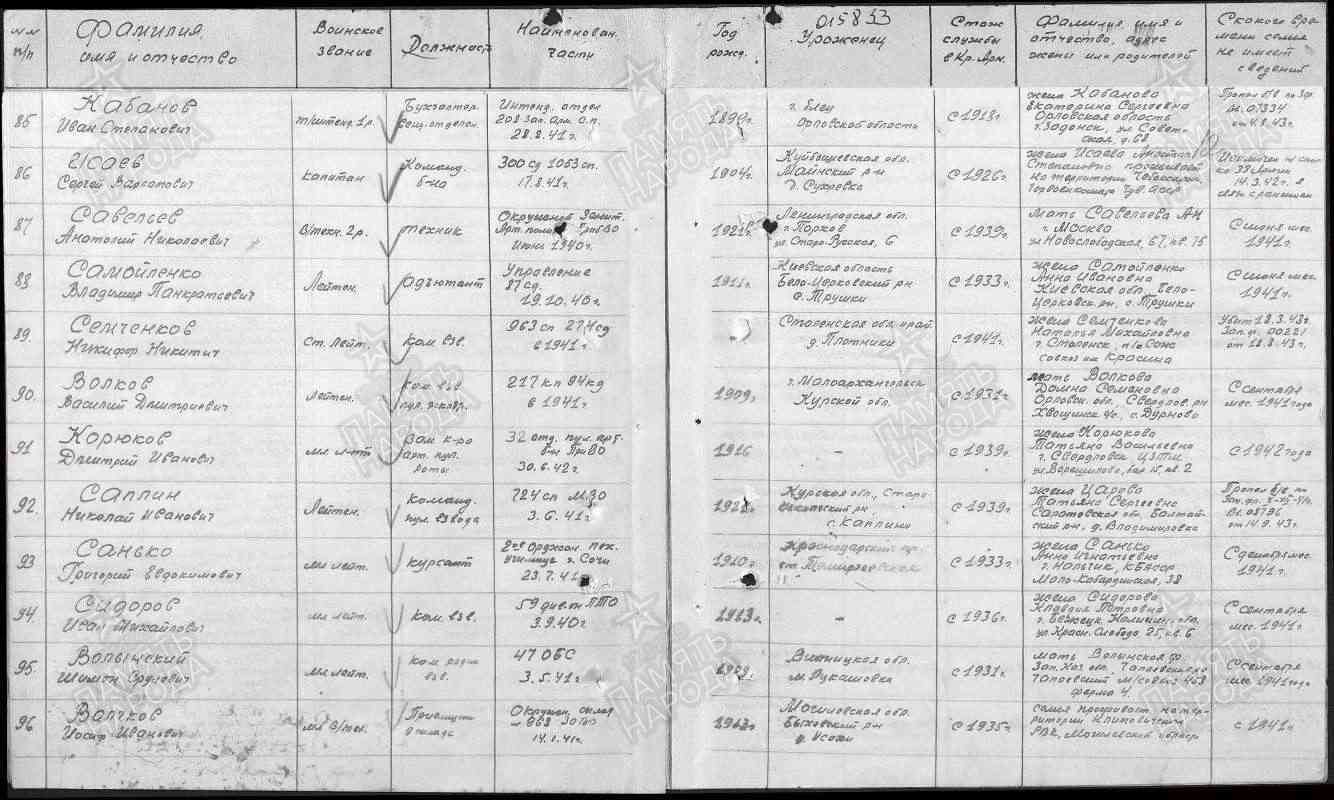 015833
№№ п/п
Фамилия, имя и отчество
Воинское звание
Должность
Наименован. части
Год рожд.
Уроженец
Стаж службы в Кр. Арм.
Фамилия, имя и отчество, адрес жены или родителей
С какого времени семья не имеет сведений
85
Кабанов
Иван Степанович
т/интенд. 1р.
Бухгалтер
Интенд. отдел
208 Зап. арм. с.п.
28.8.41г.
1899г.
г. Елец
Орловской области
с 1918г.
жена Кабанова
Екатерина Сергеевна
Орловская область
г. Задонск, ул Совет-
ская, д. 68
от 4.8.43г.
86
Исаев
Сергей Варлатович
капитан
Команд.
б-на
300 сд 1053 сп.
17.8.41г.
1904г.
Куйбышевская обл.
Маинский р-н
д. Сухревка
с 1926г.
жена Исаева
Степановна проживает
на территории Чебоксарск.
Горвоенкомат Чув. АССР
14.3.42г. в
87
Савельев
Анатолий Николаевич
В/техн. 2р.
техник
Окружной Зенит.
Арт. полигон ПриБВО
Июнь 1940г.
1921г.
Ленинградская обл.
г. Порхов
ул. Старо-Русская, 6
с 1939г.
мать Савельева АН
г. Москва
ул Новослободская, 57, кв. 75
С июня мес.
1941г.
88
Самойленко
Владимир Панкратьевич
Лейтен.
адъютант
Управление
87 сд.
19.10.40г.
1911г.
Киевская область
Бело-Церковский рн
с. Трушки
с 1933г.
жена Самойленко
Анна Ивановна
Киевская обл. Бело-
Церковск. рн, с. Трушки
С июня мес.
1941г.
89.
Семченков
Никифор Никитич
Ст. Лейт.
ком взв.
963 сп 274 сд
в 1941г.
Смоленская обл.
д. Плотники
с 1941г.
жена Семченкова
Наталья Михайловна
г. Смоленск, п/о Сож
совхоз им Красина
Убит 18.3.43г.
от 18.8.43г.
90.
Волков
Василий Дмитриевич
Лейтен.
Ком. взв.
пул. эскадр.
217 кп 94 кд
в 1941г
1909г.
г. Малоархангельск
Курской обл.
с 1931г.
мать Волкова
Домна Семеновна
Орловск. обл. Свердлов. рн
Хвощинск с/с, с. Бурново
С сентября
мес. 1941 года
91
Корюков
Дмитрий Иванович
мл л-нт
Зам к-ра
арт. пул.
роты
32 отд. пул. арт.
б-н ПриВО
30.6.42г.
1916
-
с 1939г.
жена Корюкова
Татьяна Васильевна
г. Свердловск
ул. Ворошилова, бар 15, кв. 2
с 1942 года
92.
Саплин
Николай Иванович
Лейтен.
команд.
пул. взвода
724 сп МВО
3.6.41г.
Курская обл., Старо-
Оскольский рн,
с. Каплино
с 1939г.
жена Царева
Татьяна Сергеевна
Саратовская обл. Балтай-
ский рн, д. Владимировка
от 14.9.43г.
93
Санько
Григорий Евдокимович
мл лейт.
курсант
2-ое Орджон. пех.
училище г. Сочи
23.7.41
1910г.
Краснодарский кр.
ст. Темиргоевская
с 1933г.
жена Санько
Анна Игнатьевна
г. Нальчик, КБАССР
Мало-Кабардинская, 38
С декабря мес.
1941г.
94.
Сидоров
Исай Михайлович
мл лейт.
Ком. взв.
59 див-н ПТО
3.9.40г.
1913г.
-
с 1936г.
жена Сидорова
Клавдия Петровна
г. Бежецк Калинин. обл.
ул Красн. Слобода 25, кв. 6
С сентября
мес. 1941г
95.
Волынский
Шимон Срулевич
мл лейт.
ком. радио
взв.
47 ОБС
3.5.41г.
1909г.
Винницкая обл.
м. Лукашовка
с 1931г.
мать Волынская
форма 4.
С сентября
мес. 1941 года
96
Валчков
Иосиф Иванович
Окружн. склад
14.1.41г.
Могилевская обл.
Быховский р-н
с 1935г.
семья проживает на тер-
ритории Климовичск.
РВК, Могилевской области
с 1941г.
ПАМЯТЬ НАРОДА